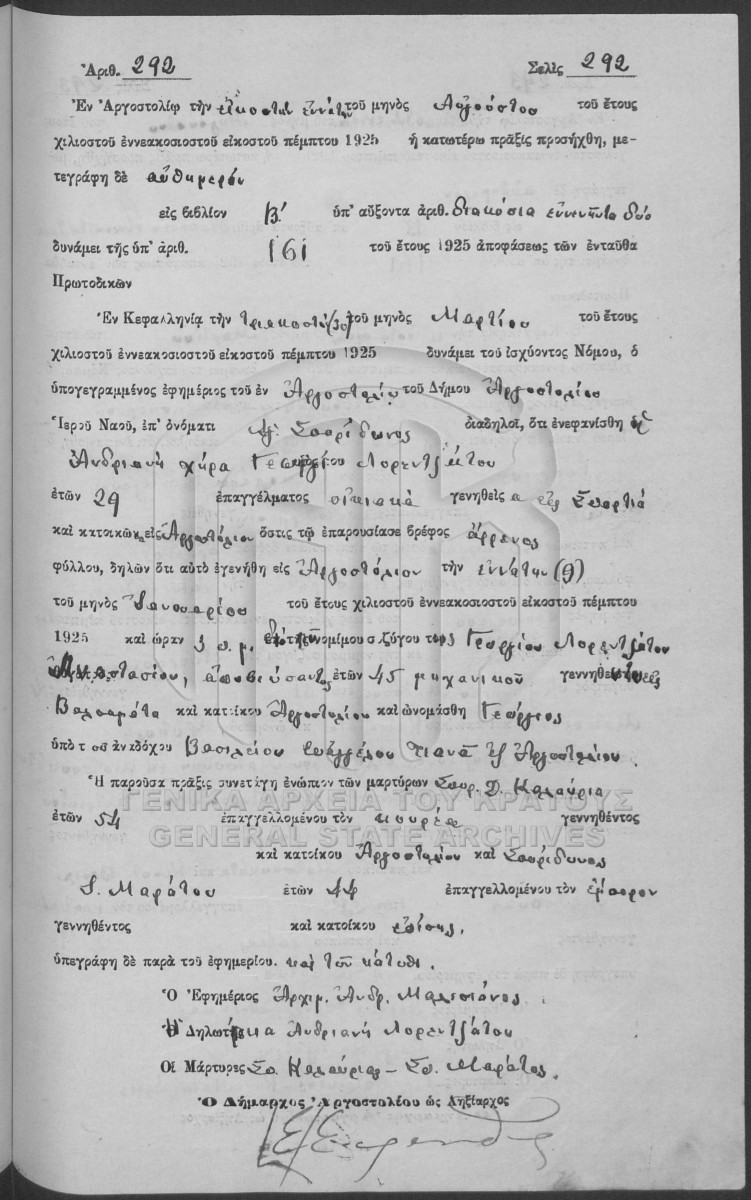 Ἀριθ. 292 Σελὶς 292
Ἐν Ἀργοστολίῳ τὴν εἰκοστὴν ἐννάτην τοῦ μηνὸς Αὐγούστου τοῦ ἔτους
χιλιοστοῦ ἐννεακοσιοστοῦ εἰκοστοῦ πέμπτου 1925 ἡ κατωτέρω πρᾶξις προσήχθη, με-
τεγράφη δὲ αὐθημερόν
εἰς βιβλίον Β΄ ὑπ' αὔξοντα ἀριθ. διακόσια ἐννενῆντα δύο
δυνάμει τῆς ὑπ' ἀριθ. 161 τοῦ ἔτους 1925 ἀποφάσεως τῶν ἐνταῦθα
Πρωτοδικῶν
Ἐν Κεφαλληνίᾳ τὴν τριακοστὴν (30) τοῦ μηνὸς Μαρτίου τοῦ ἔτους
χιλιοστοῦ ἐννεακοσιοστοῦ εἰκοστοῦ πέμπτου 1925 δυνάμει τοῦ ἰσχύοντος Νόμου, ὁ
ὑπογεγραμμένος ἐφημέριος τοῦ ἐν Ἀργοστολίῳ τοῦ Δήμου Ἀργοστολίου
Ἱεροῦ Ναοῦ, ἐπ' ὀνόματι Ἁγ. Σπυρίδωνος διαδηλοῖ, ὅτι ἐνεφανίσθη ἡ
Ἀνδριανὴ χήρα Γεωργίου Λορεντζάτου
ἐτῶν 29 ἐπαγγέλματος οἰκιακὰ γενηθεῖσα εἰς Σπαρτιὰ
καὶ κατοικῶν εἰς Ἀργοστόλιον ὅστις τῷ ἐπαρουσίασε βρέφος ἄρρενος
φύλλου, δηλῶν ὅτι αὐτὸ ἐγενήθη εἰς Ἀργοστόλιον τὴν ἐννάτην (9)
τοῦ μηνὸς Ἰανουαρίου τοῦ ἔτους χιλιοστοῦ ἐννεακοσιοστοῦ εἰκοστοῦ πέμπτου
1925 καὶ ὥραν 3 π.μ. νομίμου συζύγου της Γεωργίου Λορεντζάτου
Ἀναστασίου, ἀποβιώσαντος ἐτῶν 45 μηχανικοῦ γεννηθέντος εἰς
Βαλσαμάτα καὶ κατοίκου Ἀργοστολίου καὶ ὠνομάσθη Γεώργιος
ὑπὸ τοῦ ἀναδόχου Βασιλείου Εὐαγγέλου Τιανᾶ ἐξ Ἀργοστολίου.
Ἡ παροῦσα πρᾶξις συνετάγη ἐνώπιον τῶν μαρτύρων Σπυρ. Δ. Καλαύρια
ἐτῶν 54 ἐπαγγελλομένου τὸν κουρέα γεννηθέντος
καὶ κατοίκου Ἀργοστολίου καὶ Σπυρίδωνος
Μαράτου ἐτῶν 44 ἐπαγγελλομένου τὸν ἔμπορον
γεννηθέντος καὶ κατοίκου ἐπίσης,
ὑπεγράφη δὲ παρὰ τοῦ ἐφημερίου. καὶ τῶν κάτωθι.
Ὁ Ἐφημέριος Ἀρχιμ. Ἀνδρ.
Ἡ Δηλωτικια Ἀνδριανὴ Λορεντζάτου
Οἱ Μάρτυρες Σπ. Καλαύριας – Σπ. Μαράτος
Ὁ Δήμαρχος Ἀργοστολέου ὡς Ληξίαρχος
ΓΕΝΙΚΑ ΑΡΧΕΙΑ ΤΟΥ ΚΡΑΤΟΥΣ
GENERAL STATE ARCHIVES